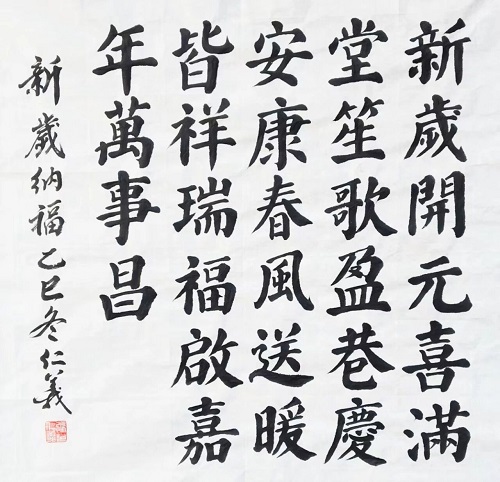 新歲開元喜滿
堂笙歌盈巷慶
安康春風送暖
皆祥瑞福啟嘉
年萬事昌
新歲納福乙巳冬仁義